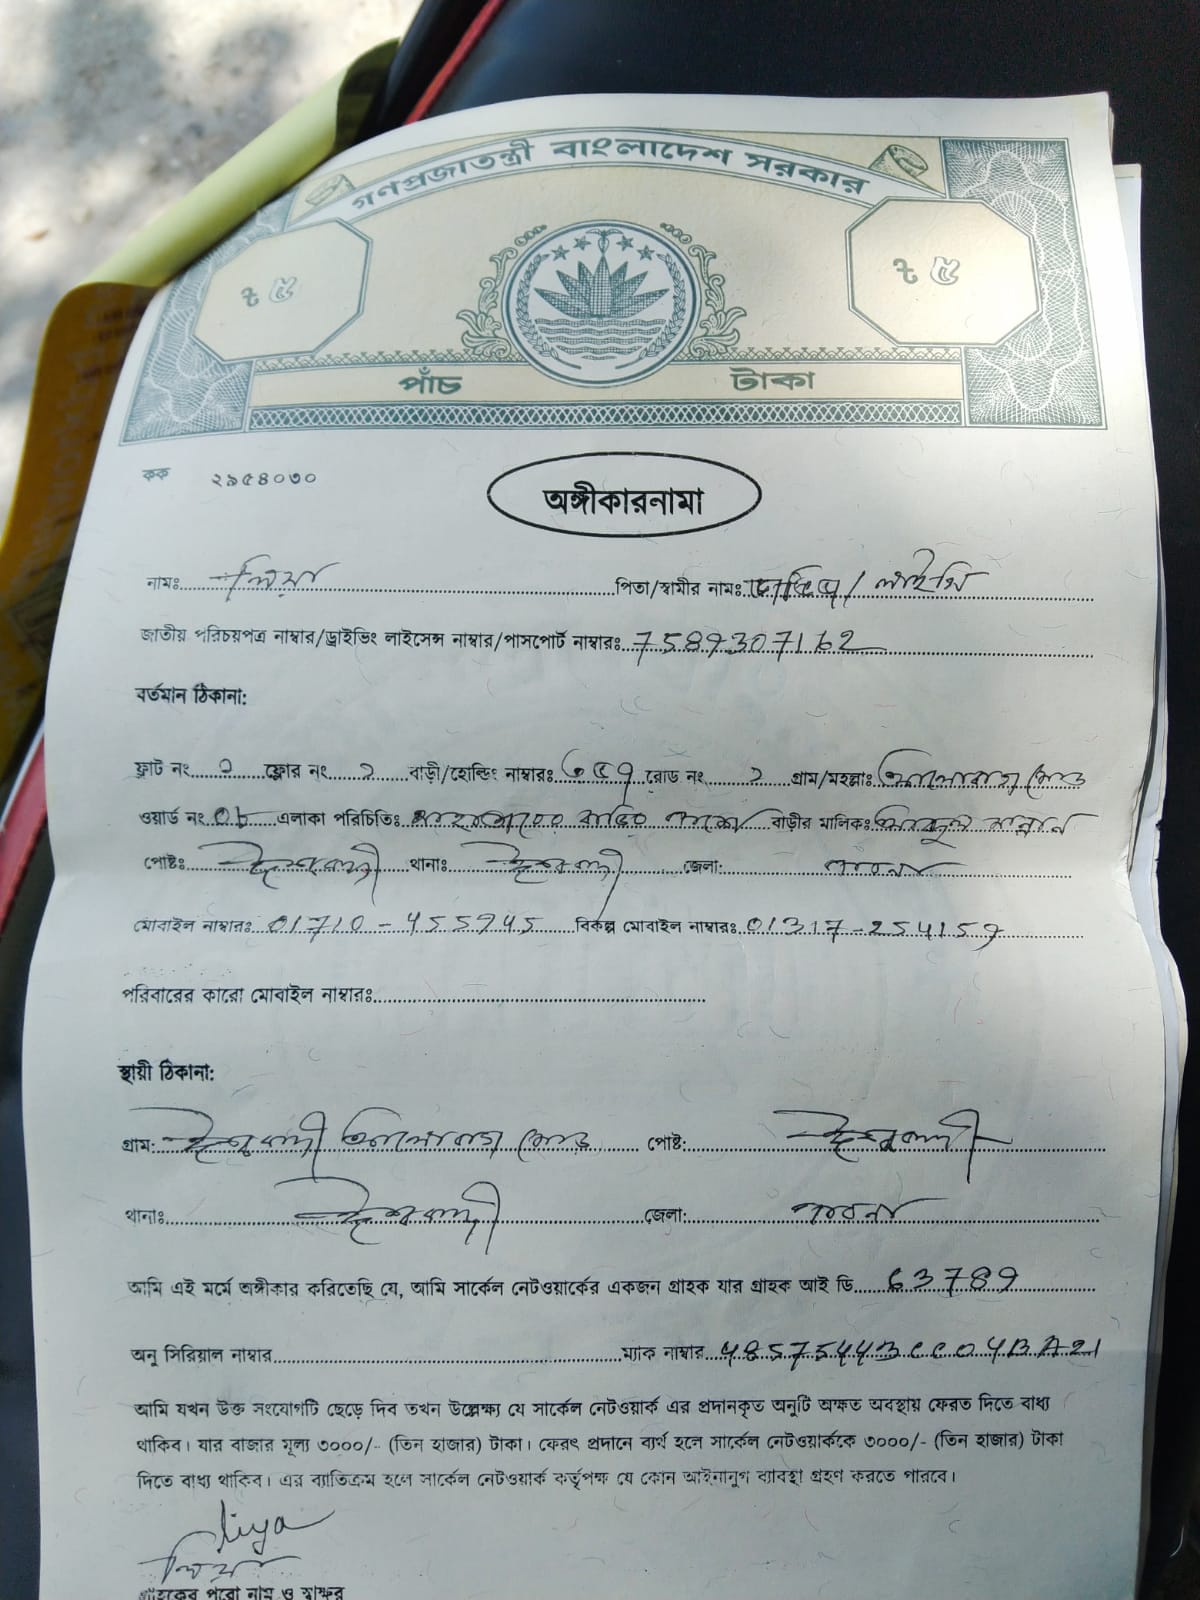 গণপ্রজাতন্ত্রী বাংলাদেশ সরকার
৳ ৫ ৳ ৫
পাঁচ টাকা
কক ২৯৫৪০৩০
অঙ্গীকারনামা
নামঃ লিয়া পিতা/স্বামীর নামঃ
জাতীয় পরিচয়পত্র নাম্বার/ড্রাইভিং লাইসেন্স নাম্বার/পাসপোর্ট নাম্বারঃ 7589307162
বর্তমান ঠিকানা:
ফ্লাট নং ফ্লোর নং ২ বাড়ী/হোল্ডিং নাম্বারঃ ৩৫৭ রোড নং ২ গ্রাম/মহল্লাঃ রোড
ওয়ার্ড নং ০৮ এলাকা পরিচিতিঃ বাড়ির পাশে বাড়ীর মালিকঃ আবদুল মান্নান
পোষ্টঃ ঈশ্বরদী থানাঃ ঈশ্বরদী জেলা: পাবনা
মোবাইল নাম্বারঃ 01710-455745 বিকল্প মোবাইল নাম্বারঃ 01317-254157
পরিবারের কারো মোবাইল নাম্বারঃ
স্থায়ী ঠিকানা:
গ্রাম: ঈশ্বরদী রোড পোষ্ট: ঈশ্বরদী
থানাঃ ঈশ্বরদী জেলা: পাবনা
আমি এই মর্মে অঙ্গীকার করিতেছি যে, আমি সার্কেল নেটওয়ার্কের একজন গ্রাহক যার গ্রাহক আই ডি 63789
অনু সিরিয়াল নাম্বার ম্যাক নাম্বার 48575443CC04BA21
আমি যখন উক্ত সংযোগটি ছেড়ে দিব তখন উল্লেক্ষ্য যে সার্কেল নেটওয়ার্ক এর প্রদানকৃত অনুটি অক্ষত অবস্থায় ফেরত দিতে বাধ্য
থাকিব। যার বাজার মূল্য ৩০০০/- (তিন হাজার) টাকা। ফেরৎ প্রদানে ব্যর্থ হলে সার্কেল নেটওয়ার্ককে ৩০০০/- (তিন হাজার) টাকা
দিতে বাধ্য থাকিব। এর ব্যাতিক্রম হলে সার্কেল নেটওয়ার্ক কর্তৃপক্ষ যে কোন আইনানুগ ব্যাবস্থা গ্রহণ করতে পারবে।
liya
লিয়া
গ্রাহকের পুরো নাম ও স্বাক্ষর